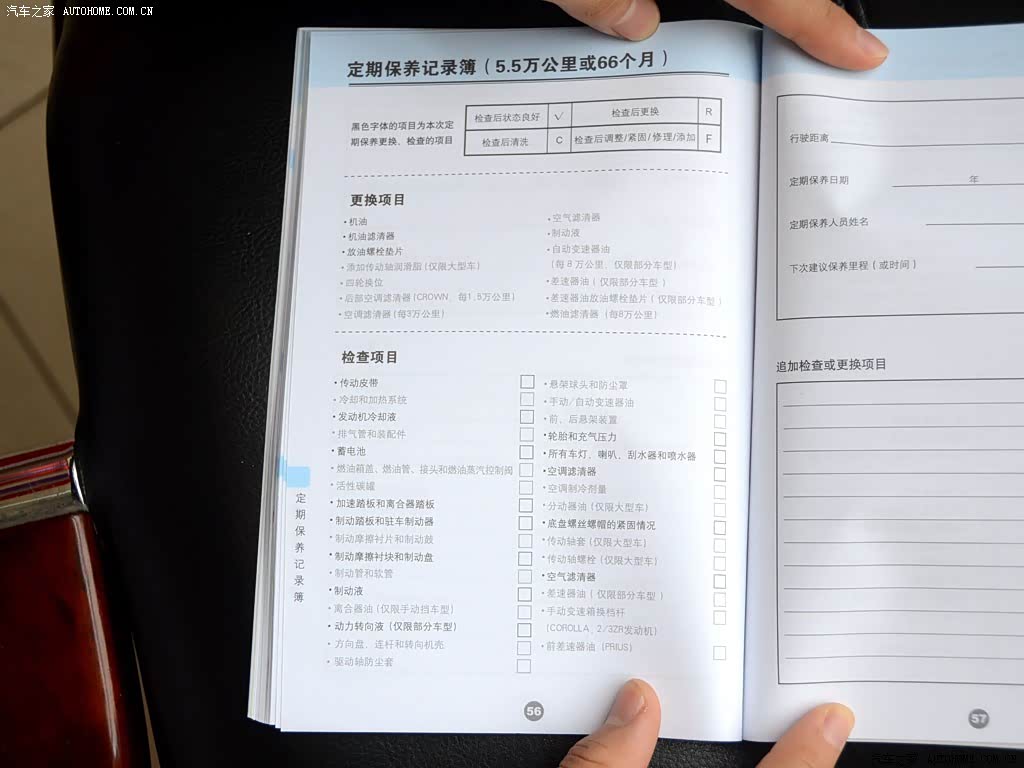 汽车之家 AUTOHOME.COM.CN
定期保养记录簿（5.5万公里或66个月）
黑色字体的项目为本次定
期保养更换、检查的项目
检查后状态良好 √ 检查后更换 R
检查后清洗 C 检查后调整/紧固/修理/添加 F
更换项目
•机油
•机油滤清器
•放油螺栓垫片
•添加传动轴润滑脂(仅限大型车)
•四轮换位
•后部空调滤清器(CROWN、每1.5万公里)
•空调滤清器(每3万公里)
•空气滤清器
•制动液
•自动变速器油
(每8万公里、仅限部分车型)
•差速器油(仅限部分车型)
•差速器油放油螺栓垫片(仅限部分车型)
•燃油滤清器(每8万公里)
检查项目
•传动皮带
•冷却和加热系统
•发动机冷却液
•排气管和装配件
•蓄电池
•燃油箱盖、燃油管、接头和燃油蒸汽控制阀
•活性碳罐
•加速踏板和离合器踏板
•制动踏板和驻车制动器
•制动摩擦衬片和制动鼓
•制动摩擦衬块和制动盘
•制动管和软管
•制动液
•离合器油(仅限手动挡车型)
•动力转向液(仅限部分车型)
•方向盘、连杆和转向机壳
•驱动轴防尘套
•悬架球头和防尘罩
•手动/自动变速器油
•前、后悬架装置
•轮胎和充气压力
•所有车灯、喇叭、刮水器和喷水器
•空调滤清器
•空调制冷剂量
•分动器油(仅限大型车)
•底盘螺丝螺帽的紧固情况
•传动轴套(仅限大型车)
•传动轴螺栓(仅限大型车)
•空气滤清器
•差速器油(仅限部分车型)
•手动变速箱换档杆
(COROLLA、2/3ZR发动机)
•前差速器油(PRIUS)
定期保养记录簿
56
行驶距离
定期保养日期 年
定期保养人员姓名
下次建议保养里程(或时间)
追加检查或更换项目
57
汽车之家 AUTOHOME.COM.CN